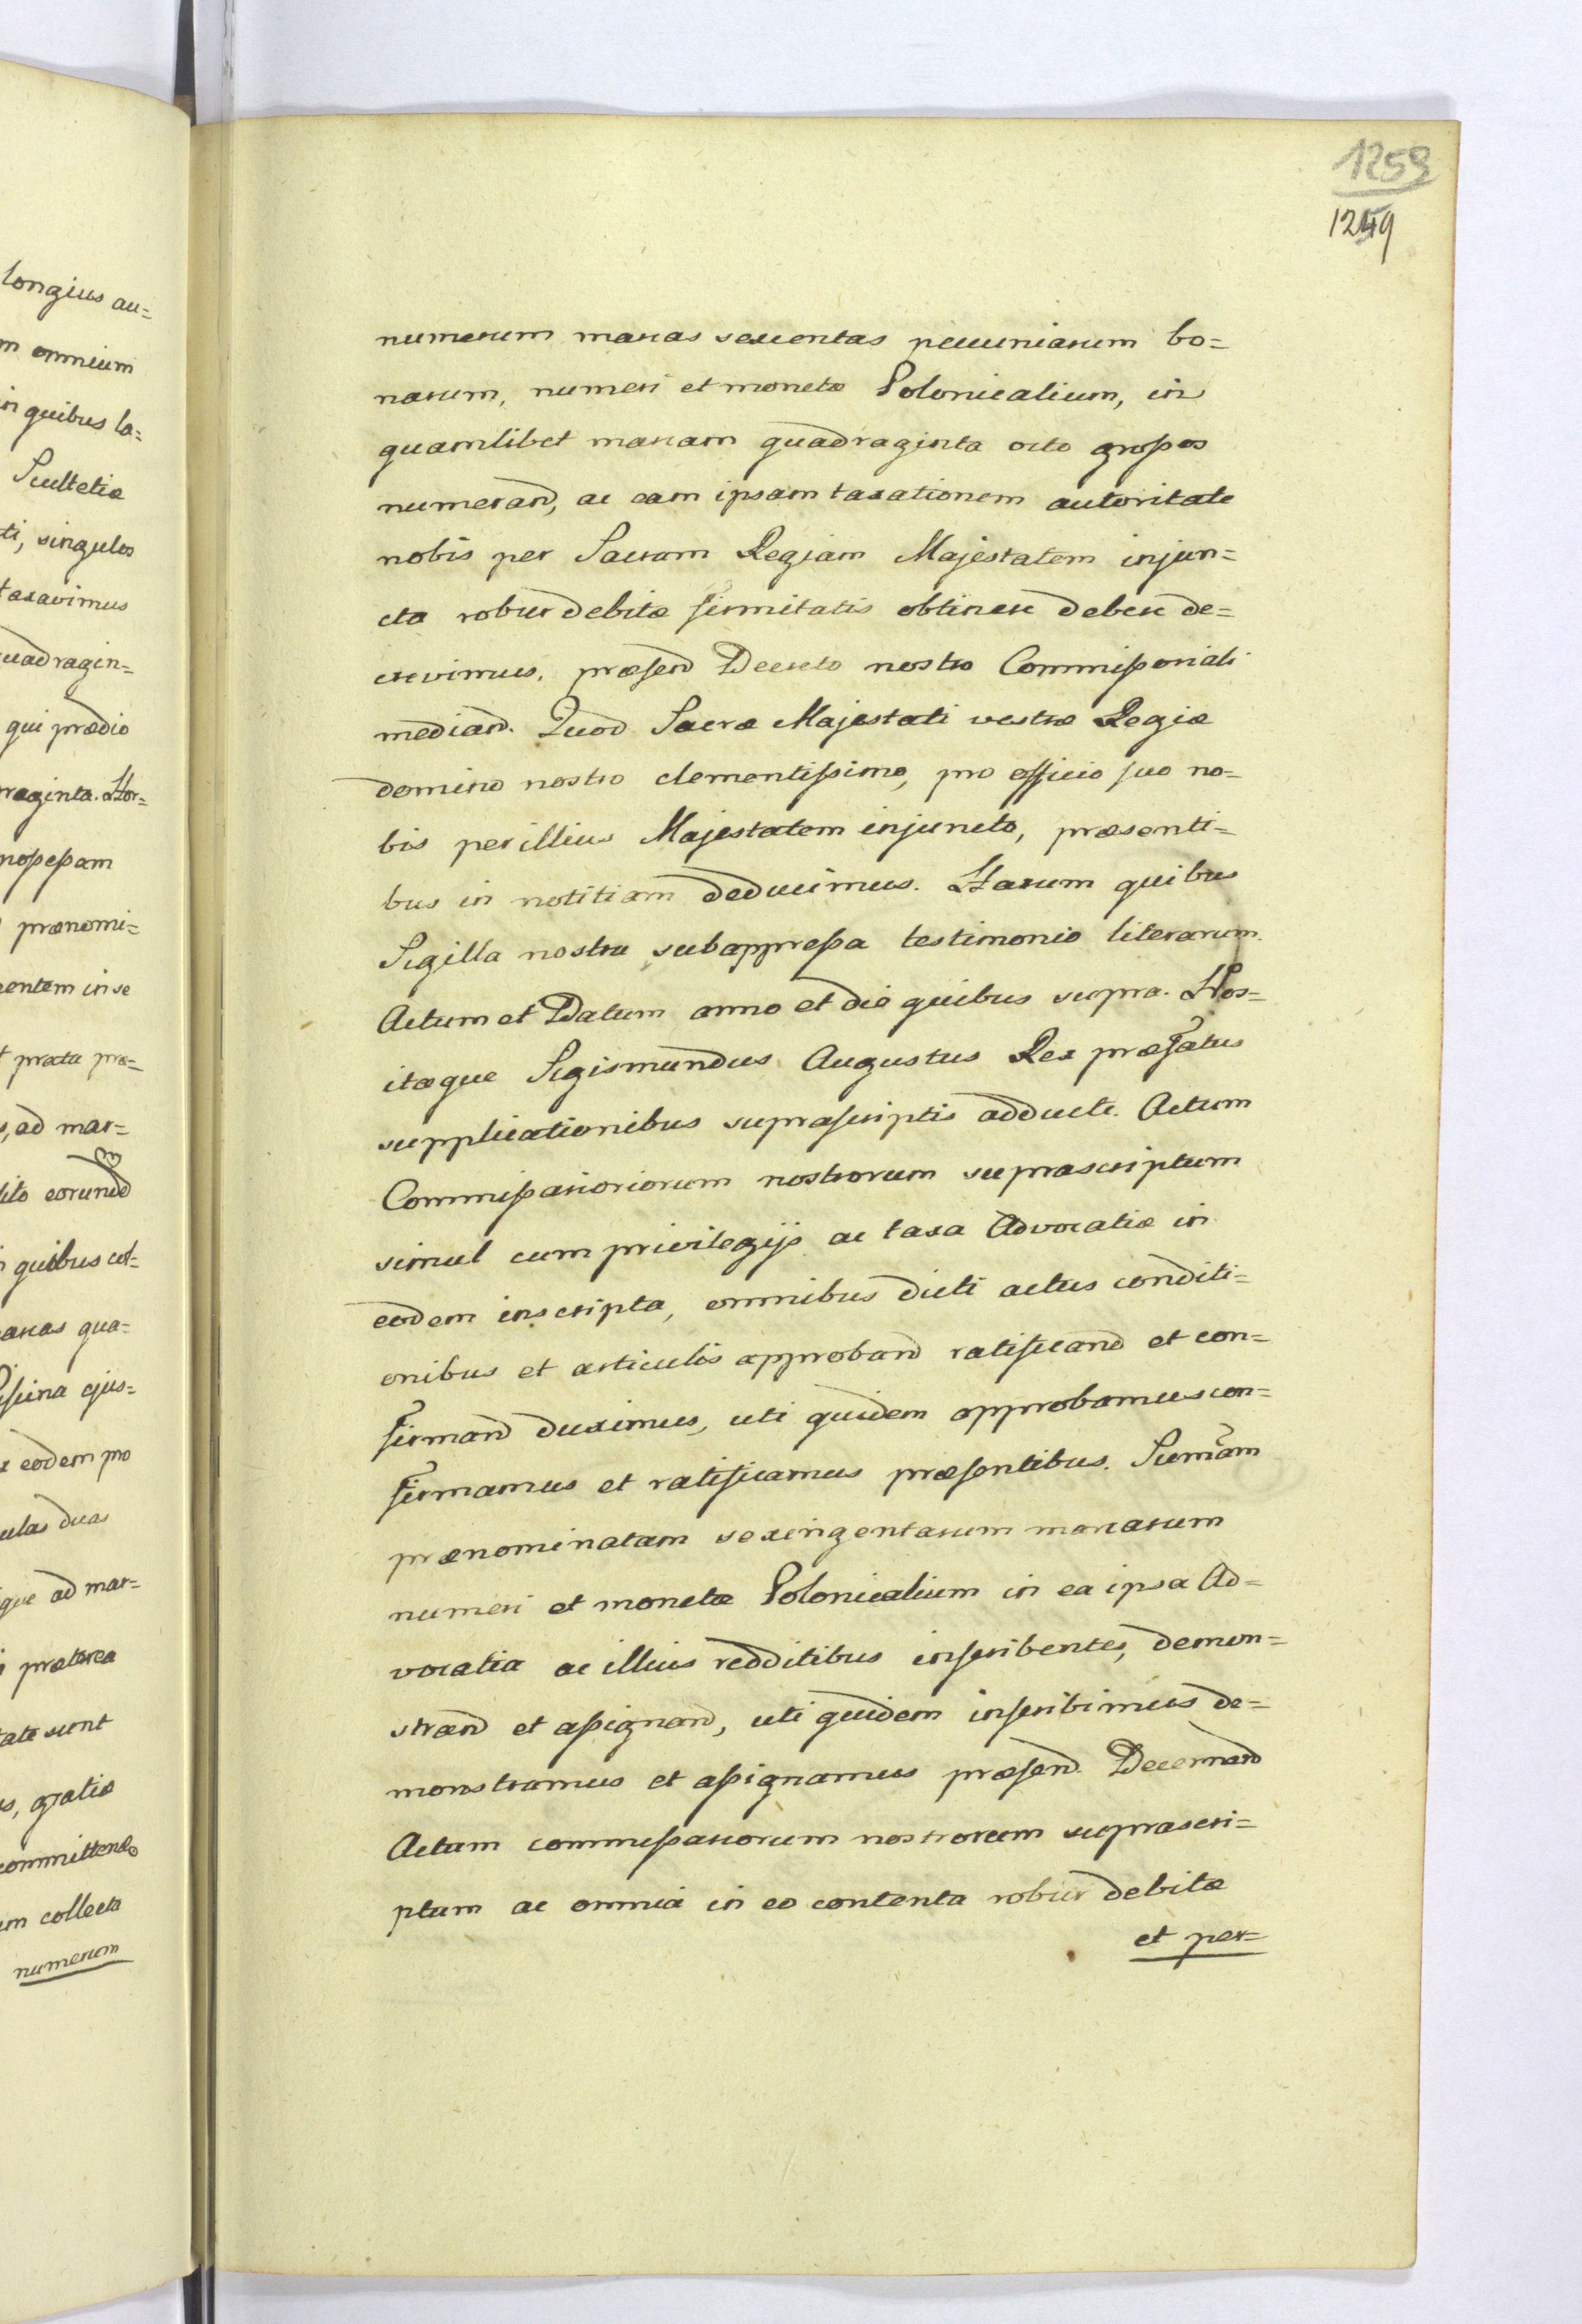 longius au=
m omnium
in quibus la=
Scultetiæ
ti, singulos
taxavimus
uadragin=
qui prædio
raginta. Hor=
prænomi=
entem in se
prata præ=
, ad mar=
eorund
quibus col=
arcas qua=
ejus=
eodem pro
ulas duas
que ad mar=
præterea
tate sunt
s, gratiæ
committend
m collecta
numerum
1259
1249
numerum marcas sexcentas pecuniarum bo=
narum, numeri et monetæ Polonicalium, in
quamlibet marcam quadraginta octo grossos
numerand, ac eam ipsam taxationem autoritate
nobis per Sacram Regiam Majestatem injun=
cta robur debitæ firmitatis obtinere debere de=
crevimus, præsend Decreto nostro Commissoriali
mediand. Quod Sacræ Majestati vestræ Regiæ
domino nostro clementissimo, pro officio suo no=
bis per illius Majestatem injuncto, præsenti=
bus in notitiam deducimus. Harum quibus
Sigilla nostra subappressa testimonio literarum.
Actum et Datum anno et die quibus supra. Nos=
itaque Sigismundus Augustus Rex præfatus
supplicationibus suprascriptis adducti. Actum
Commissarioriorum nostrorum suprascriptum
simul cum privilegijs ac taxa Advocatiæ in
eodem inscripta, omnibus dicti actus conditi=
onibus et articulis approband ratificand et con=
firmand duximus, uti quidem approbamus con=
firmamus et ratificamus præsentibus. Sumam
prænominatam sexingentarum marcarum
numeri et monetæ Polonicalium in ea ipsa Ad=
vocatia ac illius redditibus inscribentes, demon=
strand et assignand, uti quidem inscribimus de=
monstramus et assignamus præsend. Decernand
Actum commissariorum nostrorum suprascri=
ptum ac omnia in eo contenta robur debitæ
et per=